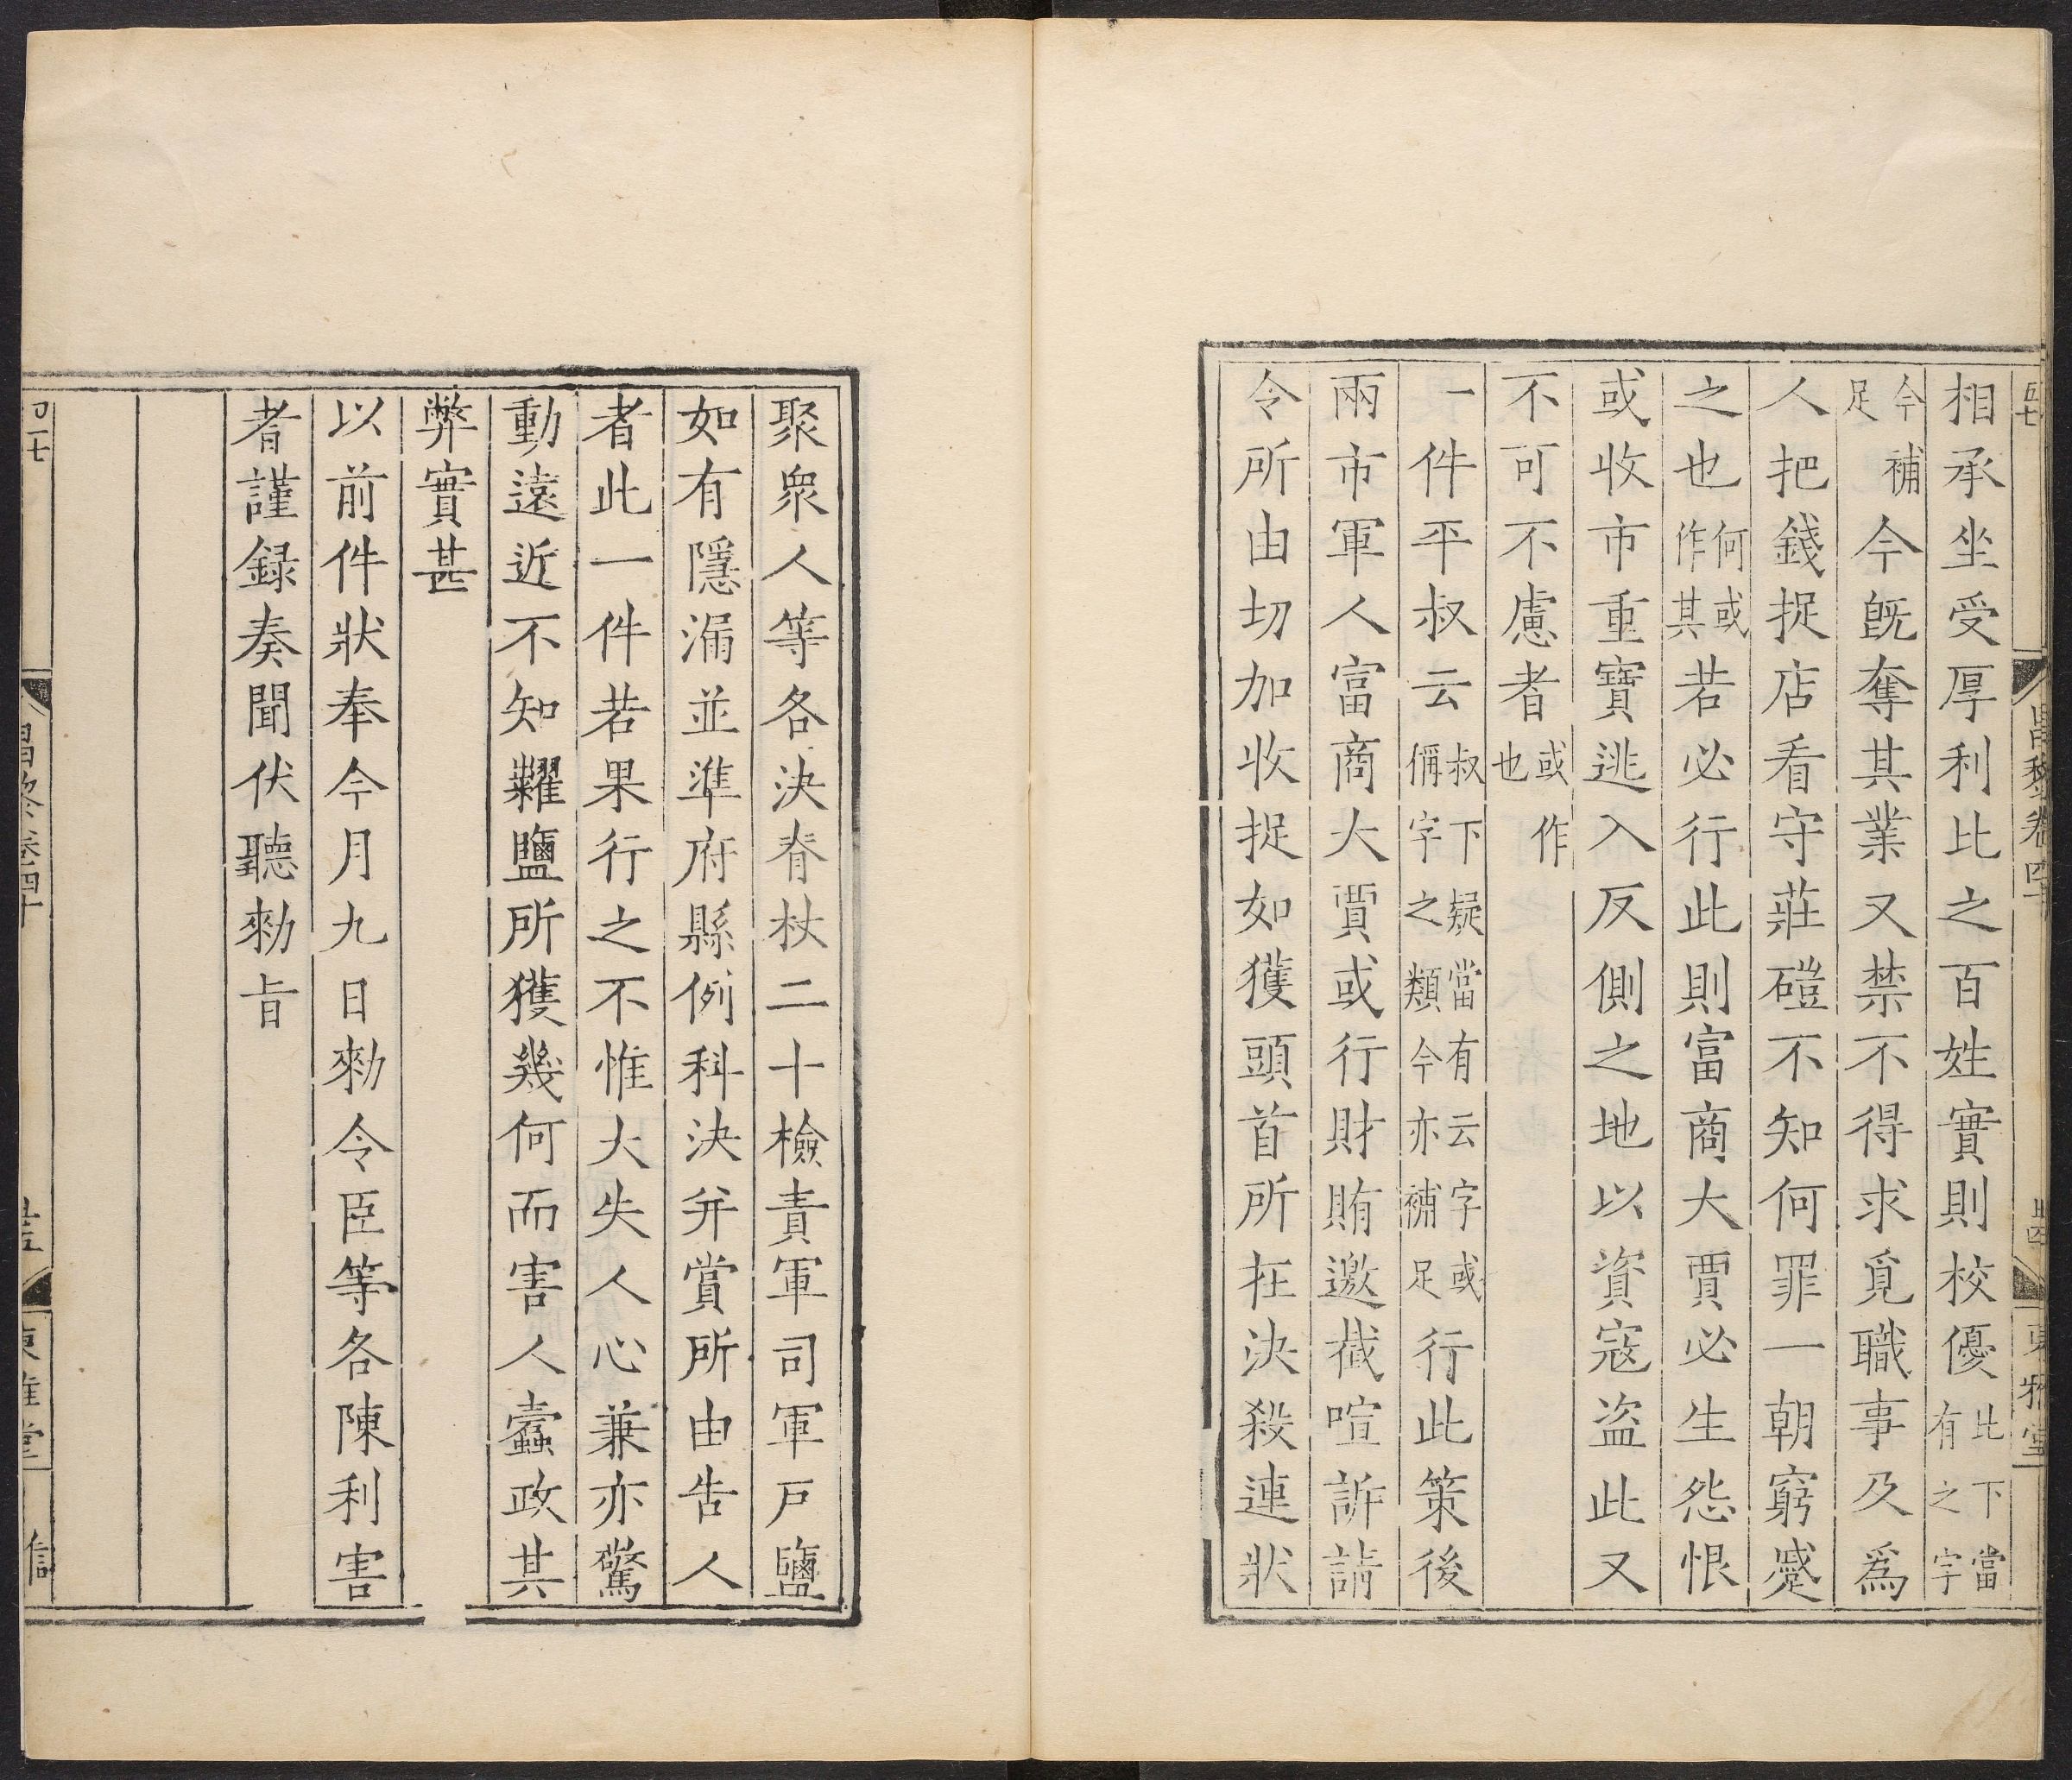 相承坐受厚利比之百姓實則校優比下當有之字
今補足今旣奪其業又禁不得求覓職事及爲
人把錢捉店看守莊磑不知何罪一朝窮蹙
之也何或作其若必行此則富商大賈必生怨恨
或收市重寶逃入反側之地以資寇盗此又
不可不慮者或作也
一件平叔云叔下疑當有云字或偁字之類今亦補足行此策後
兩市軍人富商大賈或行財賄邀截喧訴請
令所由切加收捉如獲頭首所在決殺連狀
昌黎卷四十
東雅堂
聚衆人等各決脊杖二十檢責軍司軍戸鹽
如有隱漏並準府縣例科決并賞所由告人
者此一件若果行之不惟大失人心兼亦驚
動遠近不知糶鹽所獲幾何而害人蠹政其
弊實甚
以前件狀奉今月九日勑令臣等各陳利害
者謹録奏聞伏聽勑旨
昌黎卷四十
東雅堂